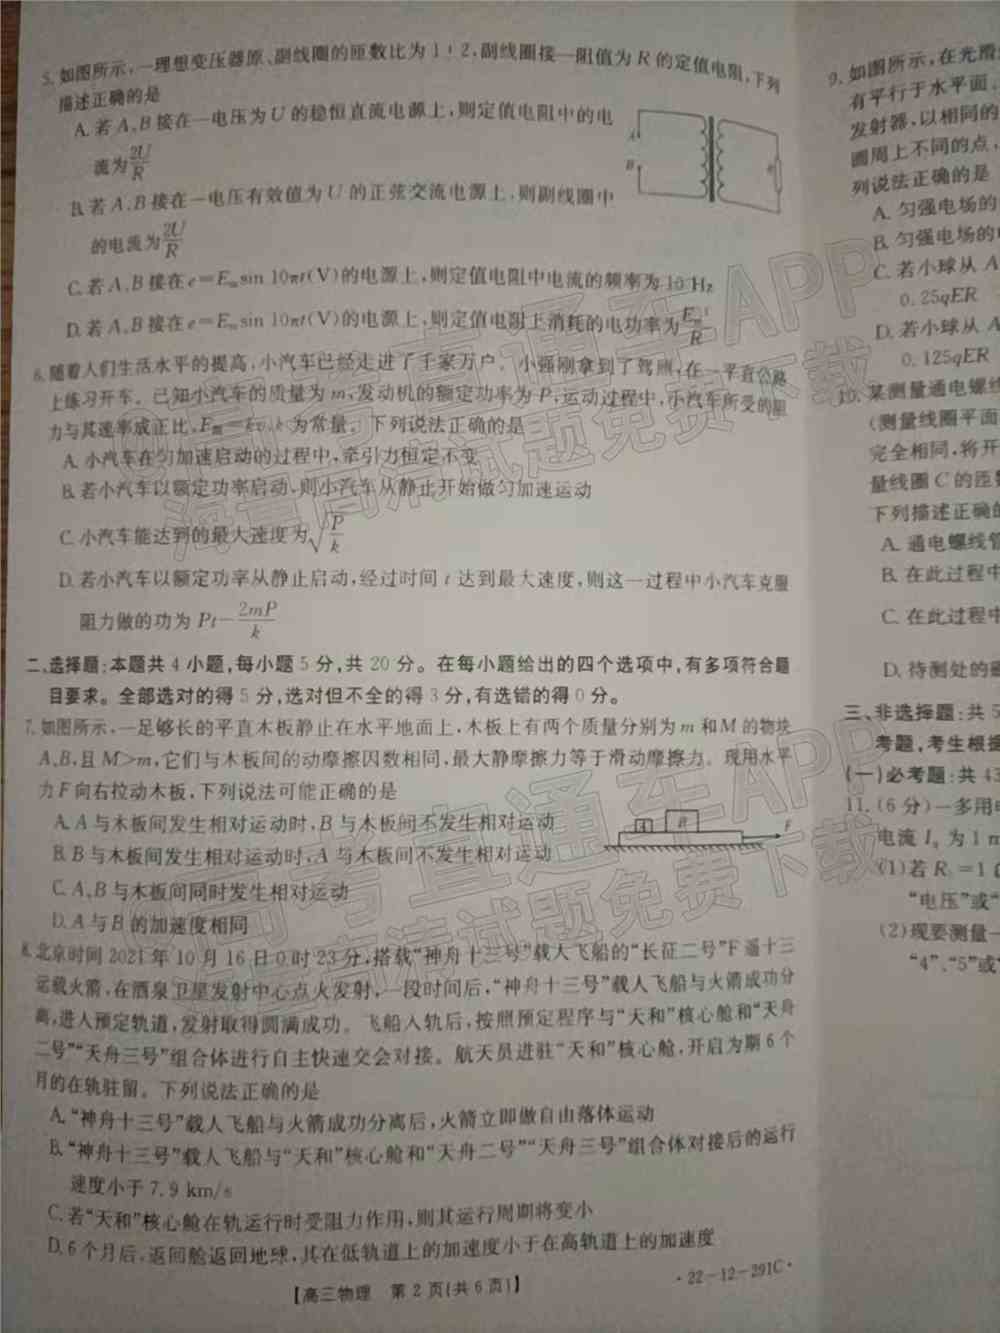 5. 如图所示,一理想变压器原、副线圈的匝数比为1∶2,副线圈接一阻值为R的定值电阻,下列
描述正确的是
A. 若A、B接在一电压为U的稳恒直流电源上,则定值电阻中的电
流为2U/R
B. 若A、B接在一电压有效值为U的正弦交流电源上,则副线圈中
的电流为2U/R
C. 若A、B接在e=Eₘsin 10πt(V)的电源上,则定值电阻中电流的频率为10 Hz
D. 若A、B接在e=Eₘsin 10πt(V)的电源上,则定值电阻上消耗的电功率为Eₘ²/R
A
B
R
6. 随着人们生活水平的提高,小汽车已经走进了千家万户。小强刚拿到了驾照,在一平直公路
上练习开车。已知小汽车的质量为m,发动机的额定功率为P,运动过程中,小汽车所受的阻
力与其速率成正比,F阻=kv,k为常量。下列说法正确的是
A. 小汽车在匀加速启动的过程中,牵引力恒定不变
B. 若小汽车以额定功率启动,则小汽车从静止开始做匀加速运动
C. 小汽车能达到的最大速度为√(P/k)
D. 若小汽车以额定功率从静止启动,经过时间t达到最大速度,则这一过程中小汽车克服
阻力做的功为Pt-2mP/k
二、选择题:本题共4小题,每小题5分,共20分。在每小题给出的四个选项中,有多项符合题
目要求。全部选对的得5分,选对但不全的得3分,有选错的得0分。
7. 如图所示,一足够长的平直木板静止在水平地面上,木板上有两个质量分别为m和M的物块
A、B,且M>m,它们与木板间的动摩擦因数相同,最大静摩擦力等于滑动摩擦力。现用水平
力F向右拉动木板,下列说法可能正确的是
A. A与木板间发生相对运动时,B与木板间不发生相对运动
B. B与木板间发生相对运动时,A与木板间不发生相对运动
C. A、B与木板间同时发生相对运动
D. A与B的加速度相同
A
B
F
8. 北京时间2021年10月16日0时23分,搭载“神舟十三号”载人飞船的“长征二号”F遥十三
运载火箭,在酒泉卫星发射中心点火发射,一段时间后,“神舟十三号”载人飞船与火箭成功分
离,进入预定轨道,发射取得圆满成功。飞船入轨后,按照预定程序与“天和”核心舱和“天舟
二号”“天舟三号”组合体进行自主快速交会对接。航天员进驻“天和”核心舱,开启为期6个
月的在轨驻留。下列说法正确的是
A. “神舟十三号”载人飞船与火箭成功分离后,火箭立即做自由落体运动
B. “神舟十三号”载人飞船与“天和”核心舱和“天舟二号”“天舟三号”组合体对接后的运行
速度小于7.9 km/s
C. 若“天和”核心舱在轨运行时受阻力作用,则其运行周期将变小
D. 6个月后,返回舱返回地球,其在低轨道上的加速度小于在高轨道上的加速度
【高三物理 第2页(共6页)】
·22-12-291C·
9. 如图所示,在光滑
有平行于水平面
发射器,以相同的
圈周上不同的点,
列说法正确的是
A. 匀强电场的
B. 匀强电场的
C. 若小球从A
0.25qER
D. 若小球从A
0.125qER
10. 某测量通电螺线
(测量线圈平面
完全相同,将开
量线圈C的匝数
下列描述正确的
A. 通电螺线管
B. 在此过程中
C. 在此过程中
D. 待测处的磁
三、非选择题:共5
考题,考生根据
(一)必考题:共43
11. (6分)一多用电
电流Ig为1 m
(1)若R₁=1
“电压”或“
(2)现要测量一
“4”、“5”或“
高考直通车APP
海量高清试题免费下载
高考直通车APP
海量高清试题免费下载